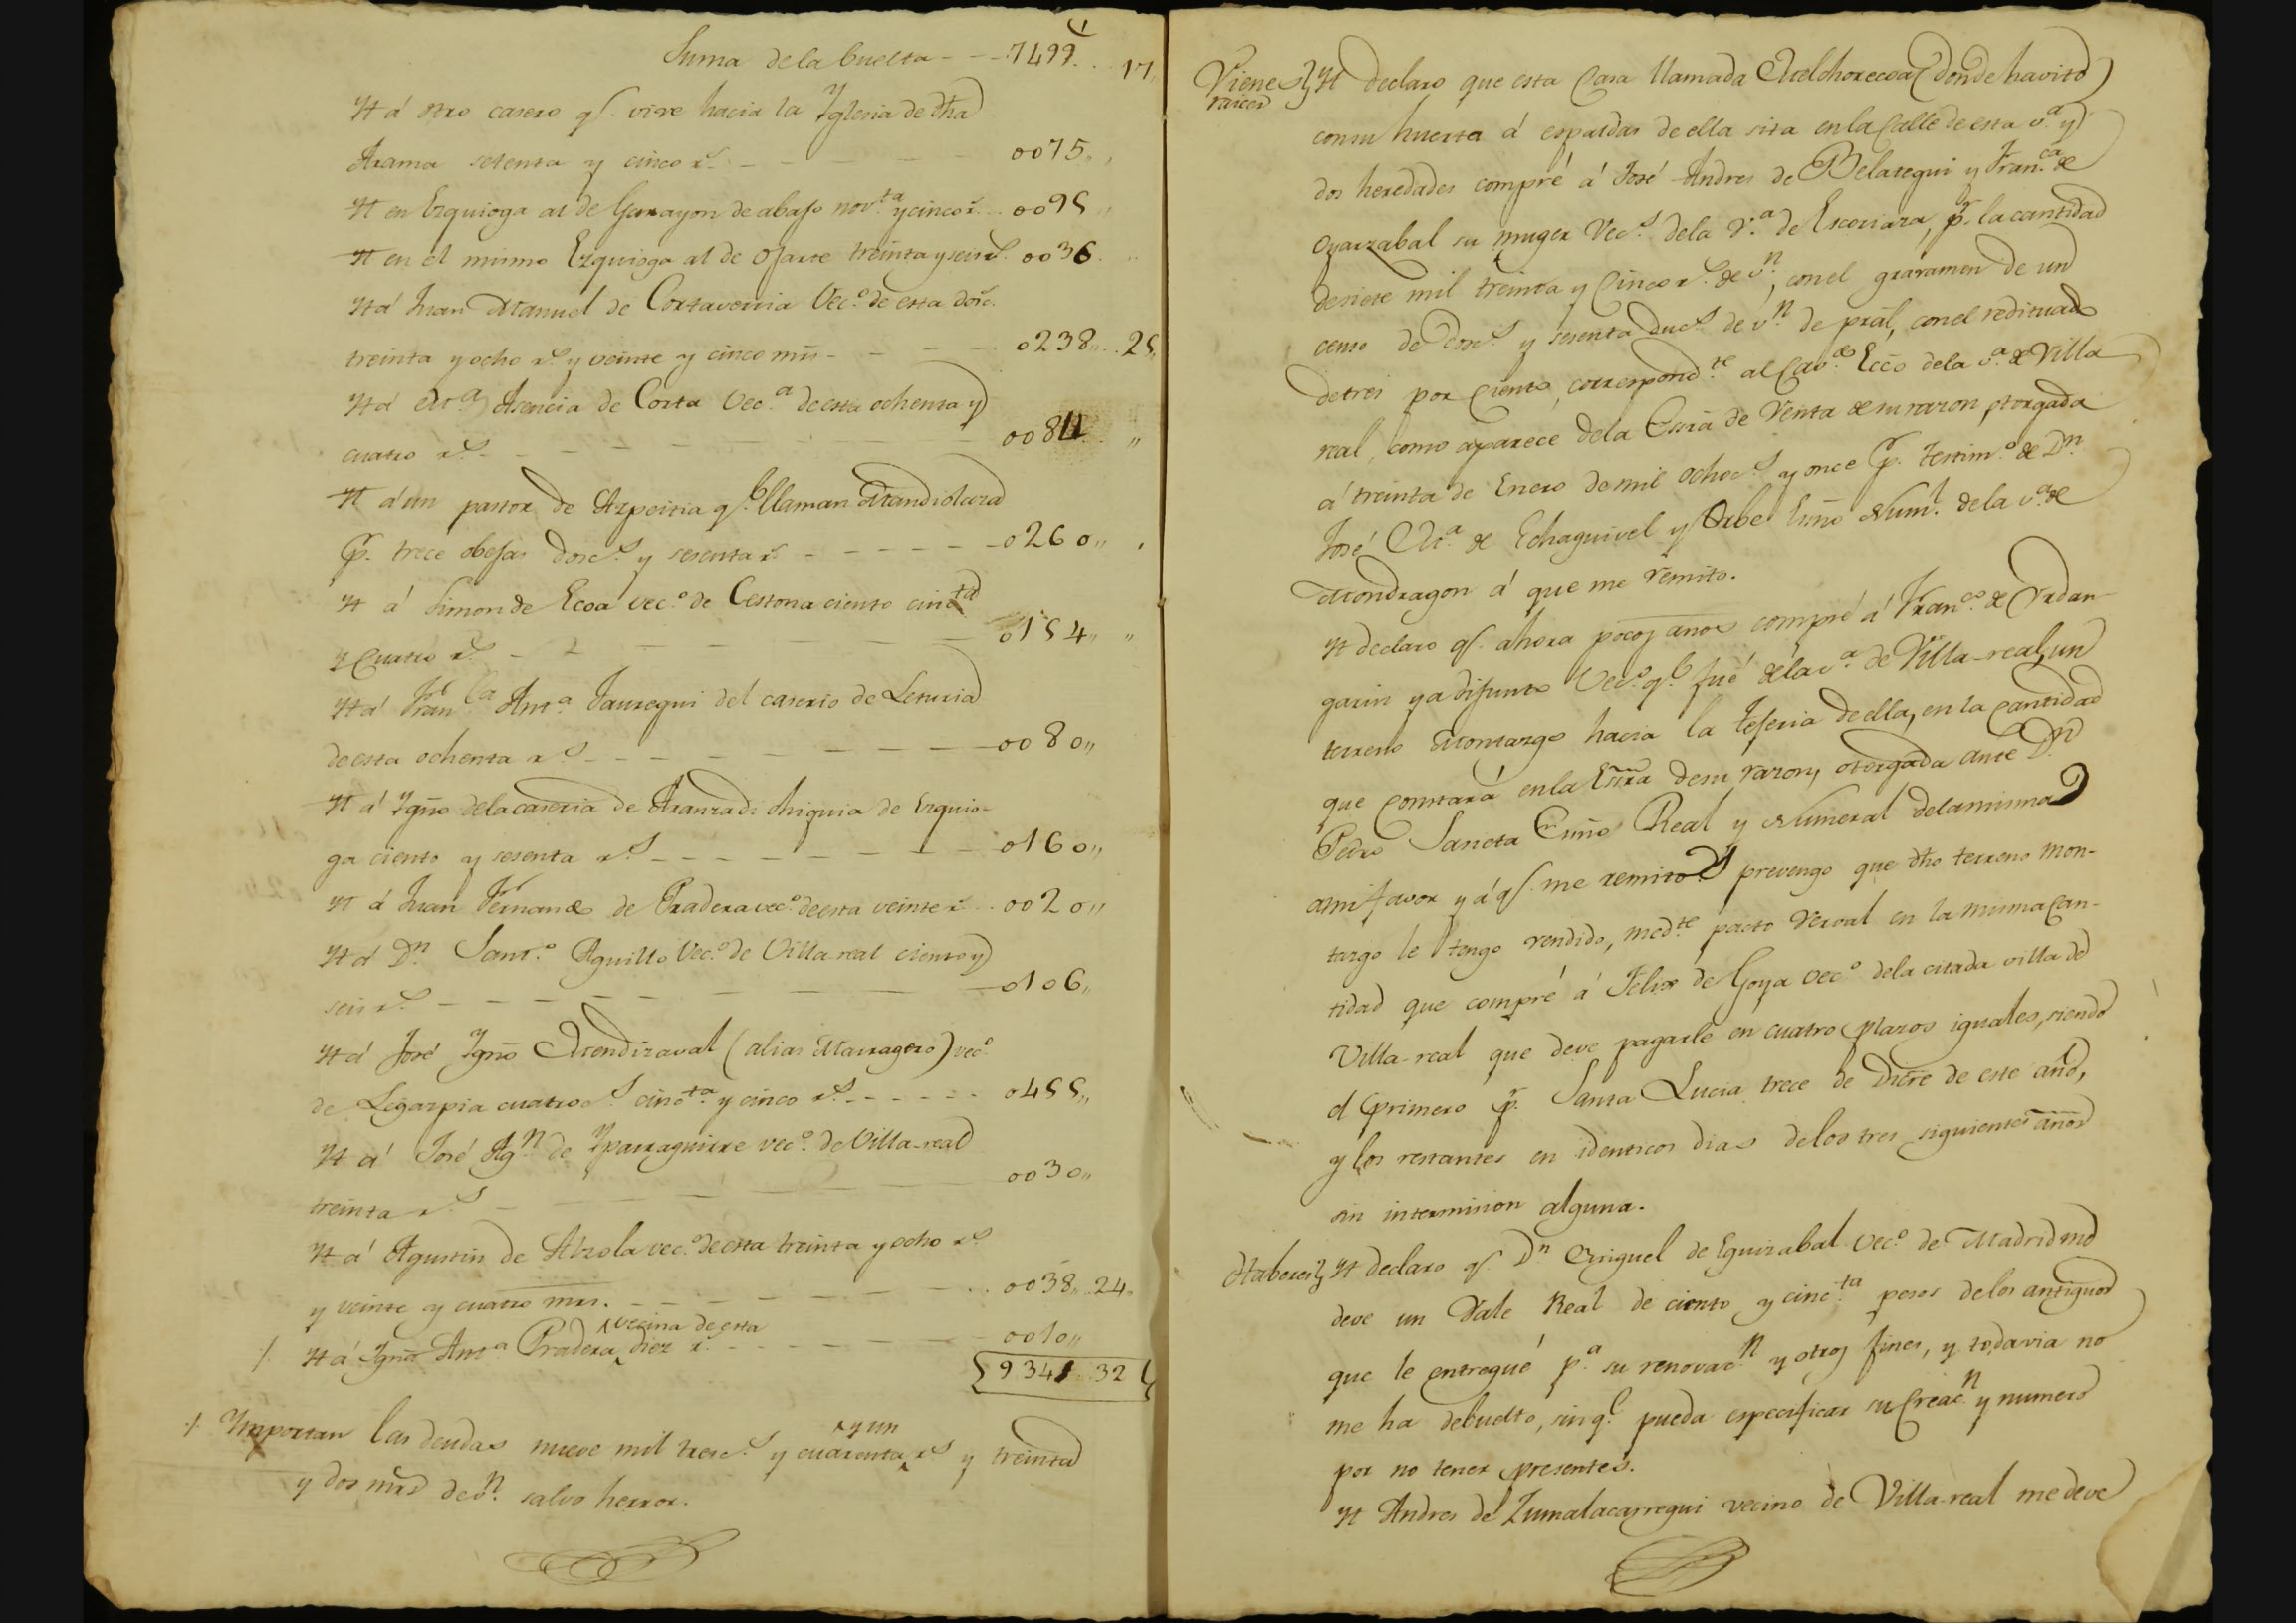 Suma de la buelta - - - 7499.. 17,,
Yt á otro casero q.e vive hacia la Yglesia de dha
Arama setenta y cinco r.s - - - 0075,,
Yt en Ezquioga al de Garayon de abajo nov.ta y cinco r.s .. 0095,,
Yt en el mismo Ezquioga al de Ojarte treinta y seis r.s 0036
Yt á Juan Manuel de Cortaverria Vec.o de esta dosc.
treinta y ocho r.s y veinte y cinco mrs - - - 0238,,..25,,
Yt á M.a Asencia de Corta Vec.a de esta ochenta y
cuatro r.s - - - 0084 ,,
Yt á un pastor de Azpeitia q.e llaman Mandiolaza
p.r trece obejas dosc.s y sesenta r.s - - - 0260,,
Yt á Simon de Ecoa vec.o de Cestona ciento cinc.ta
y cuatro r.s - - - 0154,, ,,
Yt á Fran.ca Ant.a Jauregui del caserio de Lenuria
de esta ochenta r.s - - - 0080,,
Yt á Ygño de la caseria de Aranzadi chiquia de Ezquio-
ga ciento y sesenta r.s - - - 0160,,
Yt á Juan Fernando de Pradera vec.o de esta veinte r.s .. 0020,,
Yt á D.n Sant.o Aguillo Vec.o de Villa-real ciento y
seis r.s - - - 0106,,
Yt á José Ygño Mendizaval (alias Marragero) vec.o
de Legazpia cuatroc.s cinc.ta y cinco r.s - - - 0455,,
Yt á José Ag.n de Yparraguirre vec.o de Villa-real
treinta r.s - - - 0030,,
Yt á Agustin de Alzola vec.o de esta treinta y ocho r.s
y veinte y cuatro mrs. - - - 0038,, 24,,
vecina de esta
Yt á Ygña Ant.a Pradera diez r.s - - - 0010,,
9341 .. 32
y un
Ymportan las deudas nueve mil tresc.s y cuarenta r.s y treinta
y dos mrs de v.n salvo herror.
Vienes raices
Yt declaro que esta Casa llamada Melchorecoa (donde havito)
con su huerta á espardas de ella sita en la Calle de esta v.a y
dos heredades compré á José Andres de Belasegui y Fran.ca de
Oyarzabal su muger Vec.s de la V.a de Escoriaza, p.r la cantidad
de siete mil treinta y cinco r.s de v.n, con el gravamen de un
censo de dosc.s y sesenta duc.s de v.n de pral, con el redituado
de tres por ciento, correspond.te al Cav.do Ecco de la v.a de Villa
real, como aparece de la Essra de Venta de su razon, otorgada
á treinta de Enero de mil ochoc.s y once p.r testim.o de D.n
José M.a de Echaguivel y Orbe Essno Num.l de la v.a de
Mondragon á que me remito.
Yt declaro q.e ahora pocos años compré á Fran.co de Urdan-
garin ya difunto Vec.o q.e fué de la v.a de Villa-real, un
terreno Montazgo hacia la Tejeria de ella, en la cantidad
que constará en la Essra de su razon, otorgada ante D.n
Pedro Sancta Essno Real y Numeral de la misma
a mi favor y á q.e me remito. Y prevengo que dho terreno mon-
tazgo le tengo vendido, med.te pacto Verval en la misma can-
tidad que compré á Felix de Goya vec.o de la citada villa de
Villa-real que deve pagarle en cuatro plazos iguales, siendo
el primero p.r Santa Lucia trece de Dicre de este año,
y los restantes en identicos dias de los tres siguientes años
sin intermision alguna.
Haberes
Yt declaro q.e D.n Miguel de Eguizabal vec.o de Madrid me
deve un Vale Real de ciento y cinc.ta pesos de los antiguos
que le entregué p.a su renovac.n y otros fines, y todavia no
me ha debuelto, sin q.e pueda especificar su creac.n y numero
por no tener presentes.
Yt Andres de Zumalacarregui vecino de Villa-real me deve